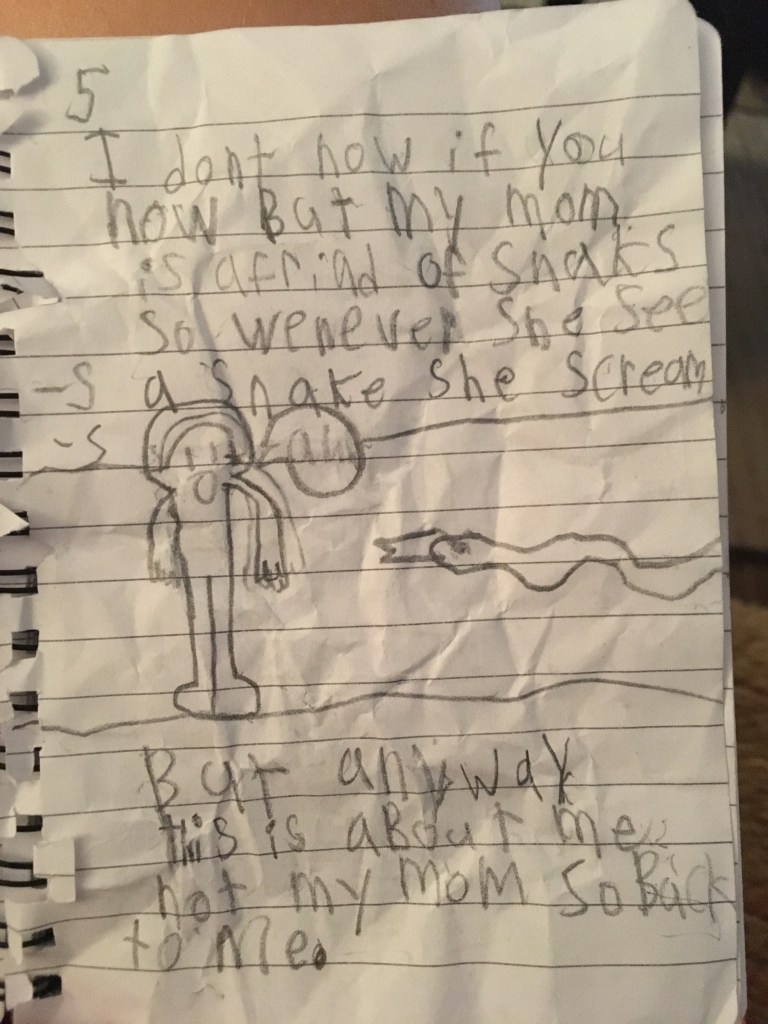 5
I dont now if you
now But my mom
is afriad of snaks
so wenever she see
-s a snake she scream
-s
ah
But anyway
this is about me
not my mom so Back
to me.